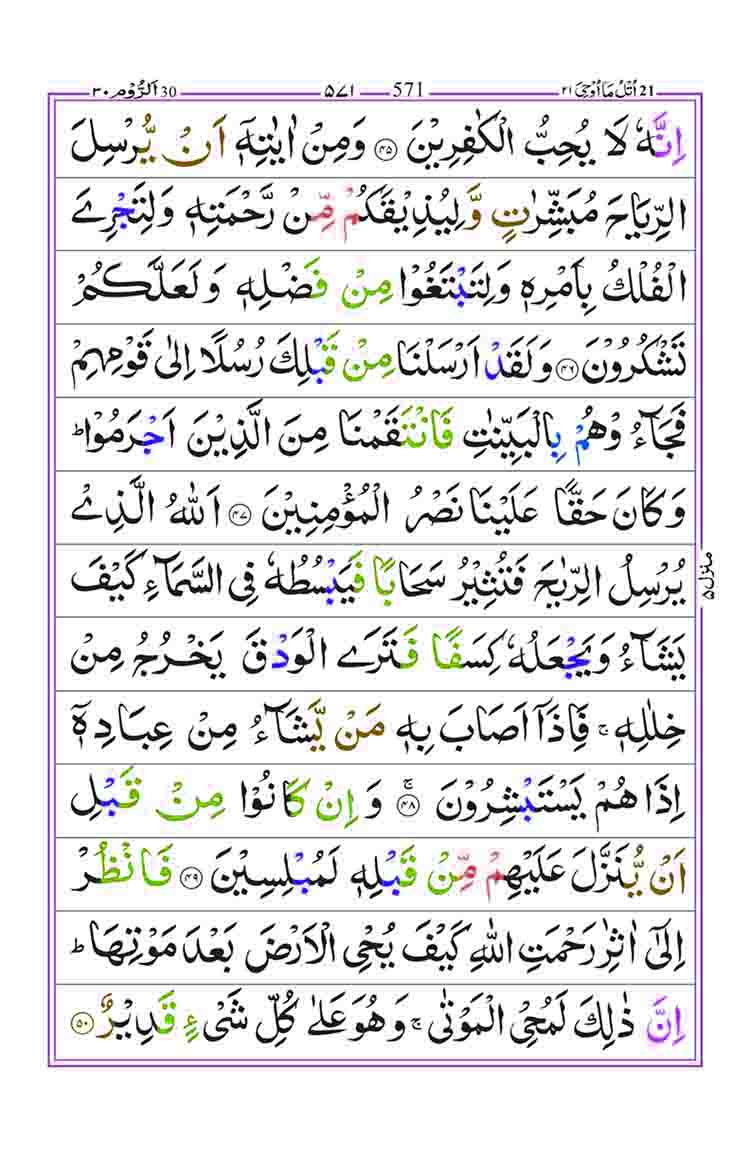 اَلرُّوۡم ٣٠ 30 ۵۷۱ 571 اُتۡلُ مَاۤ اُوۡحِىَ ٢١ 21
اِنَّهٗ لَا يُحِبُّ الۡكٰفِرِيۡنَ ﴿۴۵﴾ وَمِنۡ اٰيٰتِهٖۤ اَنۡ يُّرۡسِلَ
الرِّيَاحَ مُبَشِّرٰتٍ وَّلِيُذِيۡقَكُمۡ مِّنۡ رَّحۡمَتِهٖ وَلِتَجۡرِىَ
الۡفُلۡكُ بِاَمۡرِهٖ وَلِتَبۡتَغُوۡا مِنۡ فَضۡلِهٖ وَلَعَلَّكُمۡ
تَشۡكُرُوۡنَ ﴿۴۶﴾ وَلَقَدۡ اَرۡسَلۡنَا مِنۡ قَبۡلِكَ رُسُلًا اِلٰى قَوۡمِهِمۡ
فَجَآءُوۡهُمۡ بِالۡبَيِّنٰتِ فَانۡتَقَمۡنَا مِنَ الَّذِيۡنَ اَجۡرَمُوۡا ؕ
وَكَانَ حَقًّا عَلَيۡنَا نَصۡرُ الۡمُؤۡمِنِيۡنَ ﴿۴۷﴾ اَللّٰهُ الَّذِىۡ
يُرۡسِلُ الرِّيٰحَ فَتُثِيۡرُ سَحَابًا فَيَبۡسُطُهٗ فِى السَّمَآءِ كَيۡفَ
يَشَآءُ وَيَجۡعَلُهٗ كِسَفًا فَتَرَى الۡوَدۡقَ يَخۡرُجُ مِنۡ
خِلٰلِهٖ ۚ فَاِذَاۤ اَصَابَ بِهٖ مَنۡ يَّشَآءُ مِنۡ عِبَادِهٖۤ
اِذَا هُمۡ يَسۡتَبۡشِرُوۡنَ ۚ‏ ﴿۴۸﴾ وَاِنۡ كَانُوۡا مِنۡ قَبۡلِ
اَنۡ يُّنَزَّلَ عَلَيۡهِمۡ مِّنۡ قَبۡلِهٖ لَمُبۡلِسِيۡنَ ﴿۴۹﴾ فَانۡظُرۡ
اِلٰٓى اٰثٰرِ رَحۡمَتِ اللّٰهِ كَيۡفَ يُحۡىِ الۡاَرۡضَ بَعۡدَ مَوۡتِهَا ؕ
اِنَّ ذٰلِكَ لَمُحۡىِ الۡمَوۡتٰى ۚ وَهُوَ عَلٰى كُلِّ شَىۡءٍ قَدِيۡرٌ ﴿۵۰﴾
منزل ۵